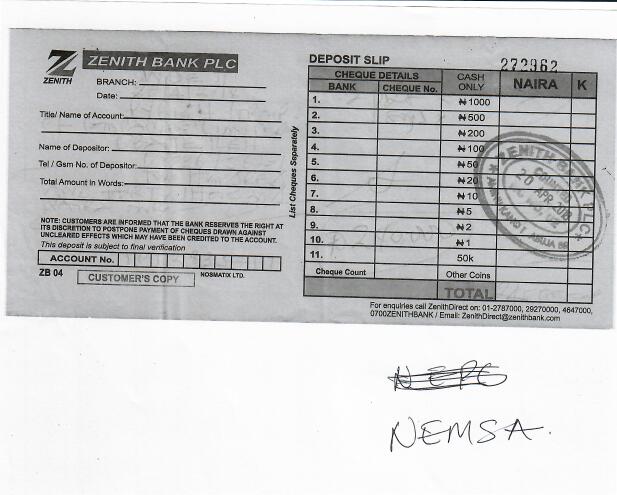 ZENITH
ZENITH BANK PLC
BRANCH:
Date:
Title/ Name of Account:
Name of Depositor:
Tel / Gsm No. of Depositor:
Total Amount in Words:
NOTE: CUSTOMERS ARE INFORMED THAT THE BANK RESERVES THE RIGHT AT
ITS DISCRETION TO POSTPONE PAYMENT OF CHEQUES DRAWN AGAINST
UNCLEARED EFFECTS WHICH MAY HAVE BEEN CREDITED TO THE ACCOUNT.
This deposit is subject to final verification
ACCOUNT No.
ZB 04
CUSTOMER'S COPY
NOSMATIX LTD.
List Cheques Separately
DEPOSIT SLIP
272962
CHEQUE DETAILS
BANK CHEQUE No.
CASH
ONLY
NAIRA K
1. ₦ 1000
2. ₦ 500
3. ₦ 200
4. ₦ 100
5. ₦ 50
6. ₦ 20
7. ₦ 10
8. ₦ 5
9. ₦ 2
10. ₦ 1
11. 50k
Cheque Count Other Coins
TOTAL
ZENITH BANK PLC
20 APR 2018
ABUJA
For enquiries call ZenithDirect on: 01-2787000, 29270000, 4647000,
0700ZENITHBANK / Email: ZenithDirect@zenithbank.com
NEMSA.